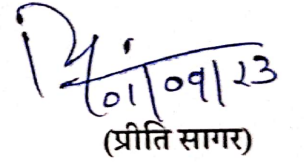 01/09/23
(प्रीति सागर)